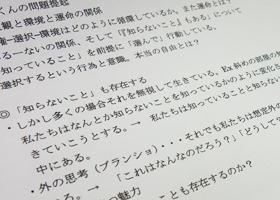 くんの問題提起
観と環境と運命の関係
権＝選択－環境はどのように循環しているか、また運命とは？
る－ないの関係、そして『知らないこと』もある」について
知っていること」を前提に「選んで」行動している。
選択するという行為と意識、本当の自由とは？
◎「知らないこと」も存在する
・しかし多くの場合それを無視して生きている。Ex 斜めの部屋の
私たちはなんとか知らないことを知っているかのように変化さ
きていこうとする。→ 私たちは知っていることと知らない
中にある。
・外の思考（ブランショ）・・・それでも私たちは想定外の
る。→「これはなんなのだろう？」「どうして？」
の魅力
ことも存在するのか？